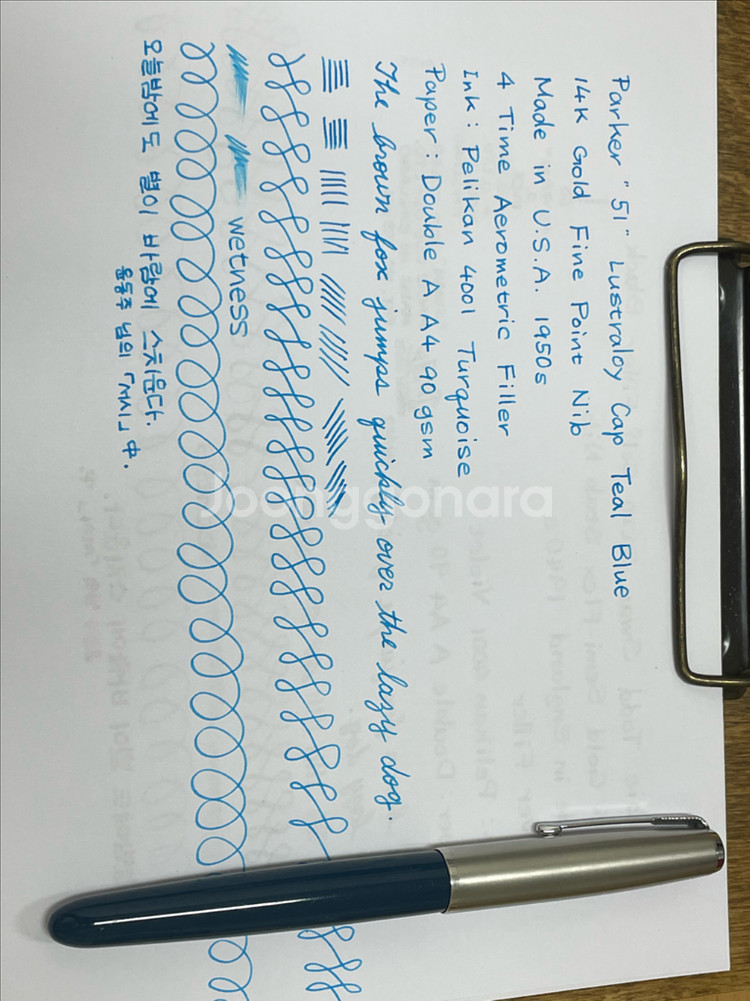 Parker "51" Lustraloy Cap Teal Blue
14K Gold Fine Point Nib
Made in U.S.A. 1950s
4 Time Aerometric Filler
Ink : Pelikan 4001 Turquoise
Paper : Double A A4 90 gsm
The brown fox jumps quickly over the lazy dog.
wetness
오늘밤에도 별이 바람에 스치운다.
윤동주 님의 「서시」 中.
Joonggonara